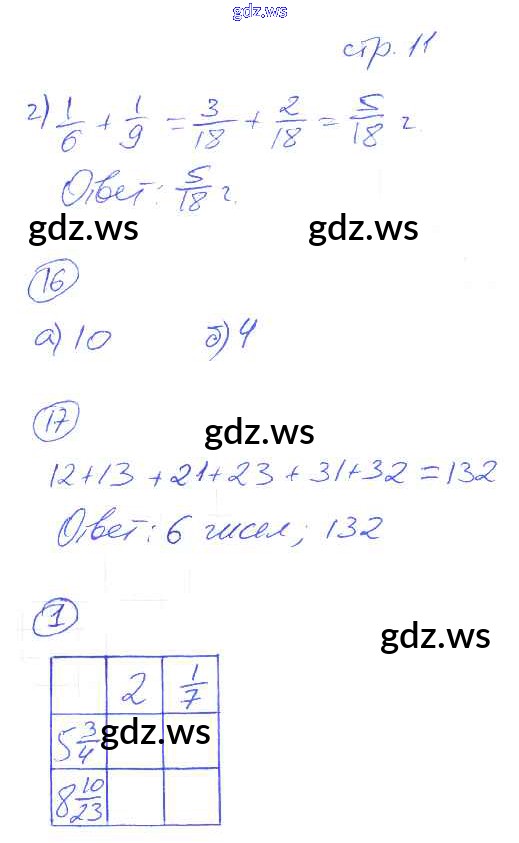 gdz.ws
стр. 11
2) 1/6 + 1/9 = 3/18 + 2/18 = 5/18 г.
Ответ: 5/18 г.
gdz.ws gdz.ws
16
а) 10 б) 4
17
gdz.ws
12+13+21+23+31+32=132
Ответ: 6 чисел; 132
1
gdz.ws
2 1/7
5 3/4
gdz.ws
8 10/23